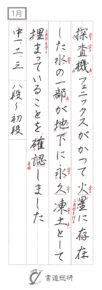 1月
探査機フェニックスがかつて火星に存在
した水の一部が地下に永久凍土として
埋まっていることを確認しました
中一・二・三 八段〜初段
書道総研